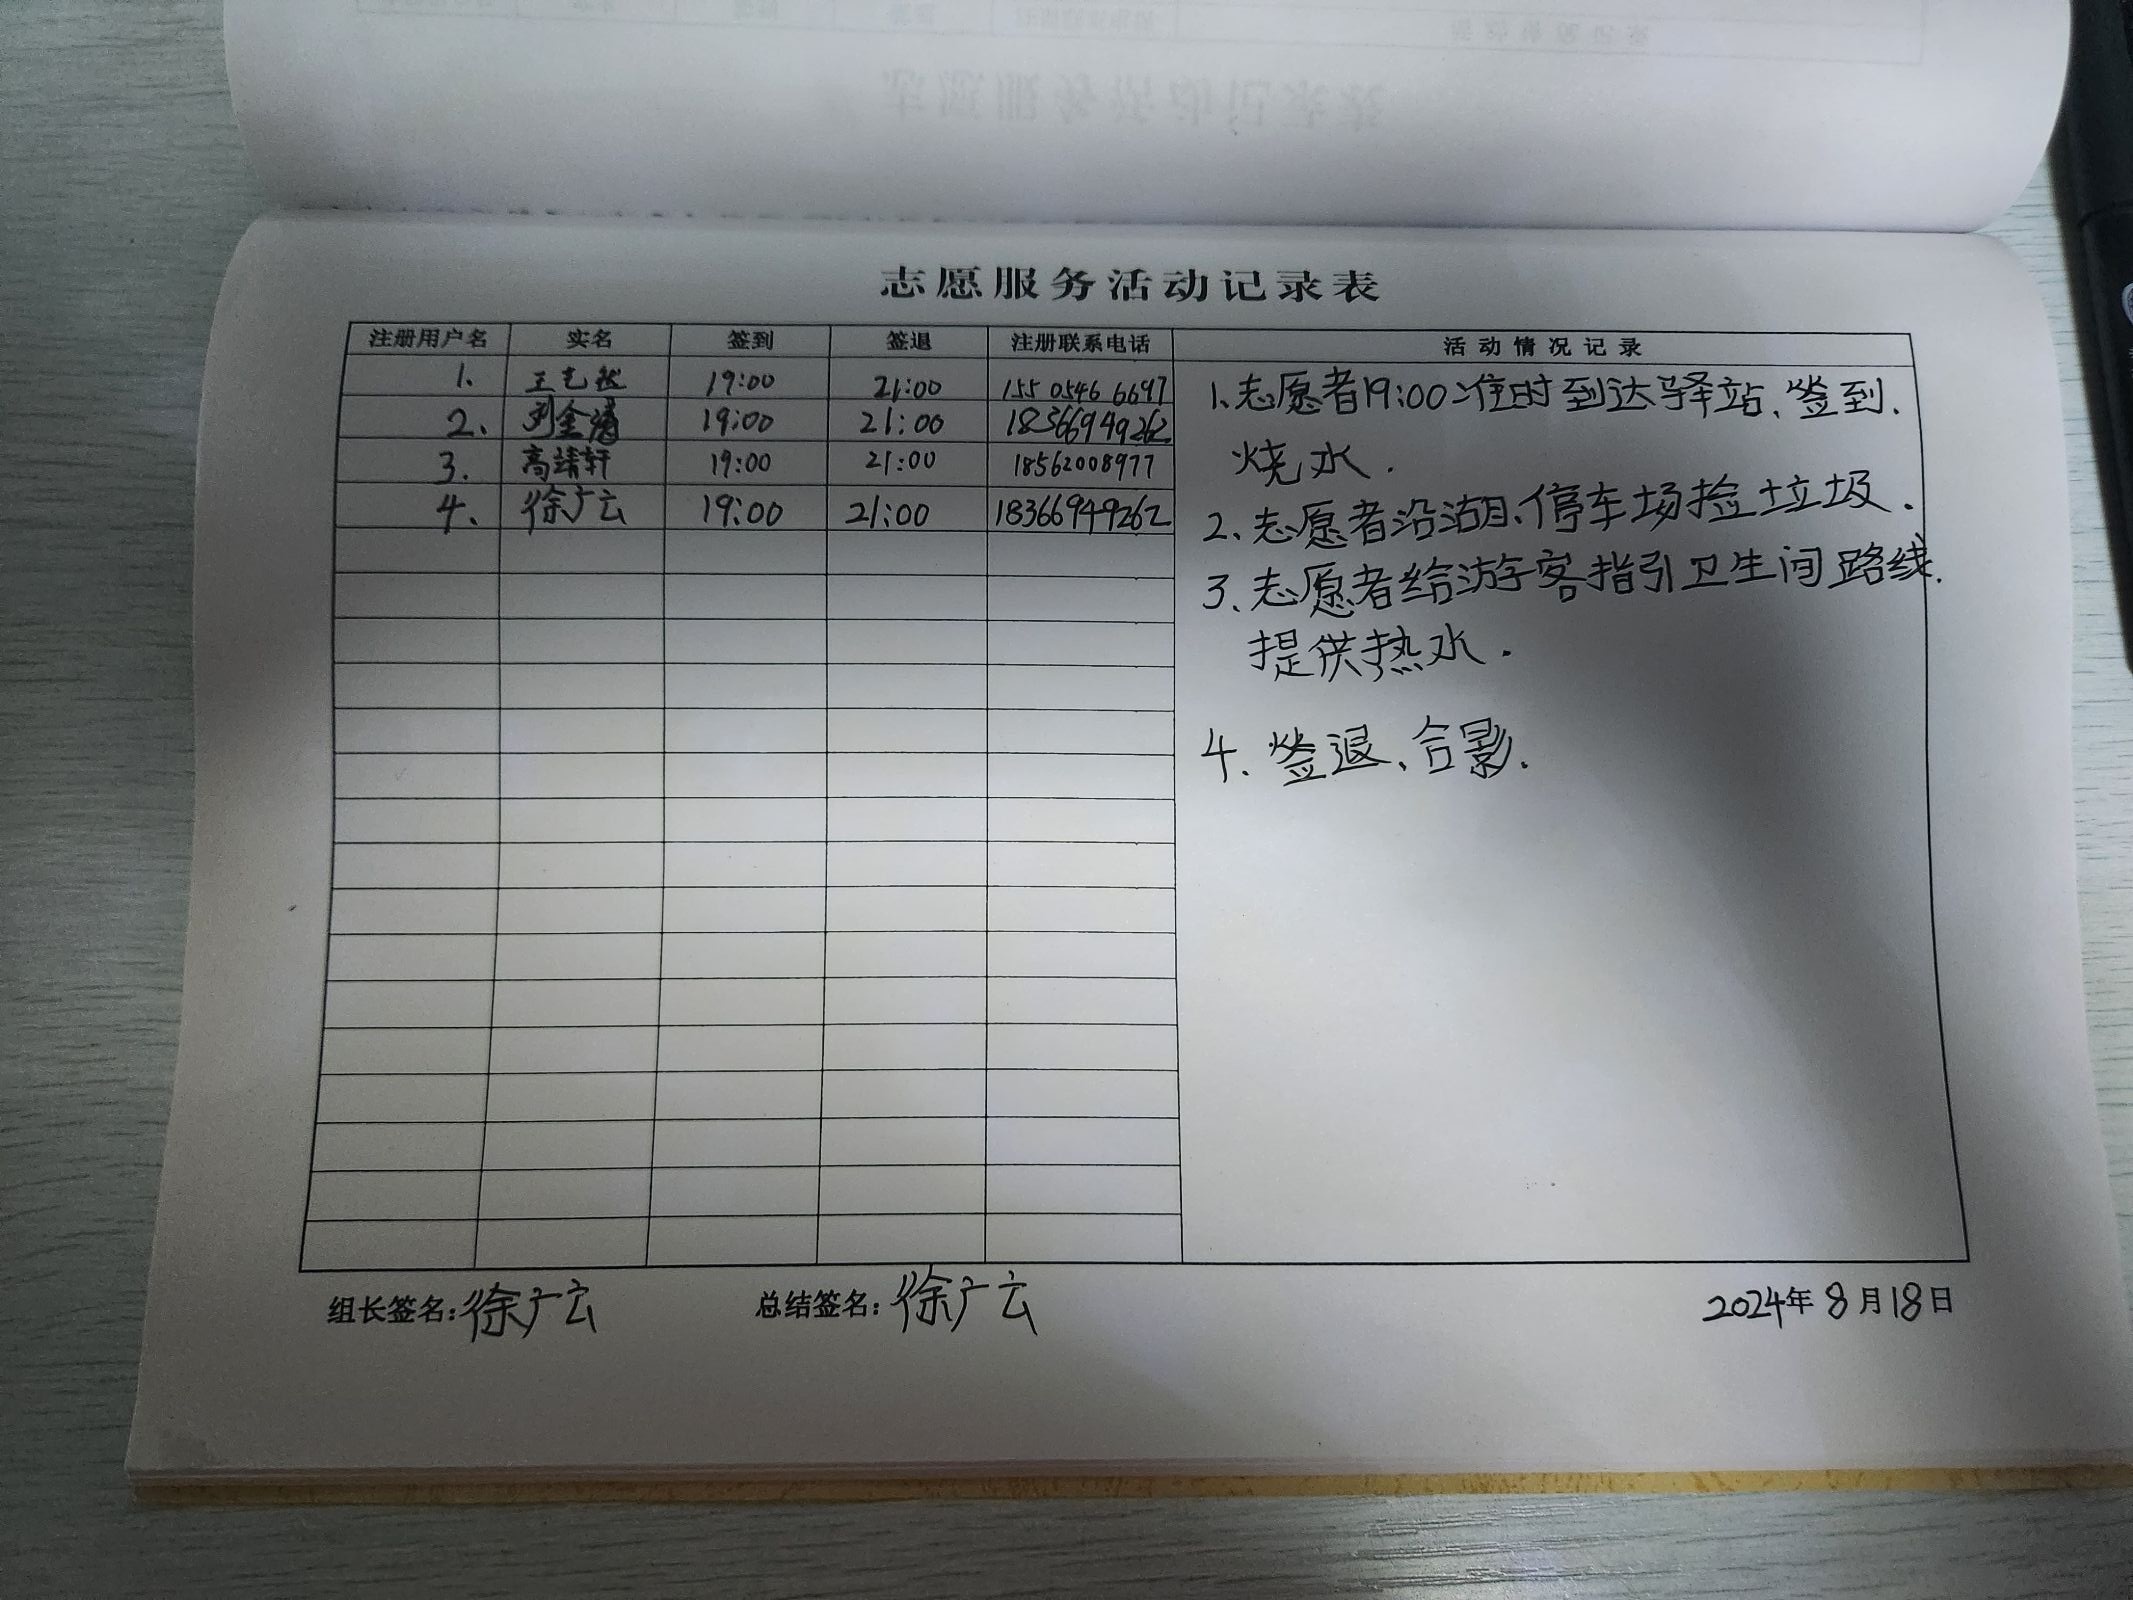 志愿服务活动记录表
注册用户名 实名 签到 签退 注册联系电话 活动情况记录
1. 王艺 19:00 21:00 155 0546 6697
2. 刘金 19:00 21:00 18366949262
3. 高靖轩 19:00 21:00 18562008977
4. 徐广云 19:00 21:00 18366949262
1、志愿者19:00准时到达驿站、签到、
烧水.
2、志愿者沿湖、停车场捡垃圾.
3、志愿者给游客指引卫生间路线.
提供热水.
4. 签退、合影.
组长签名:徐广云 总结签名:徐广云 2024年8月18日